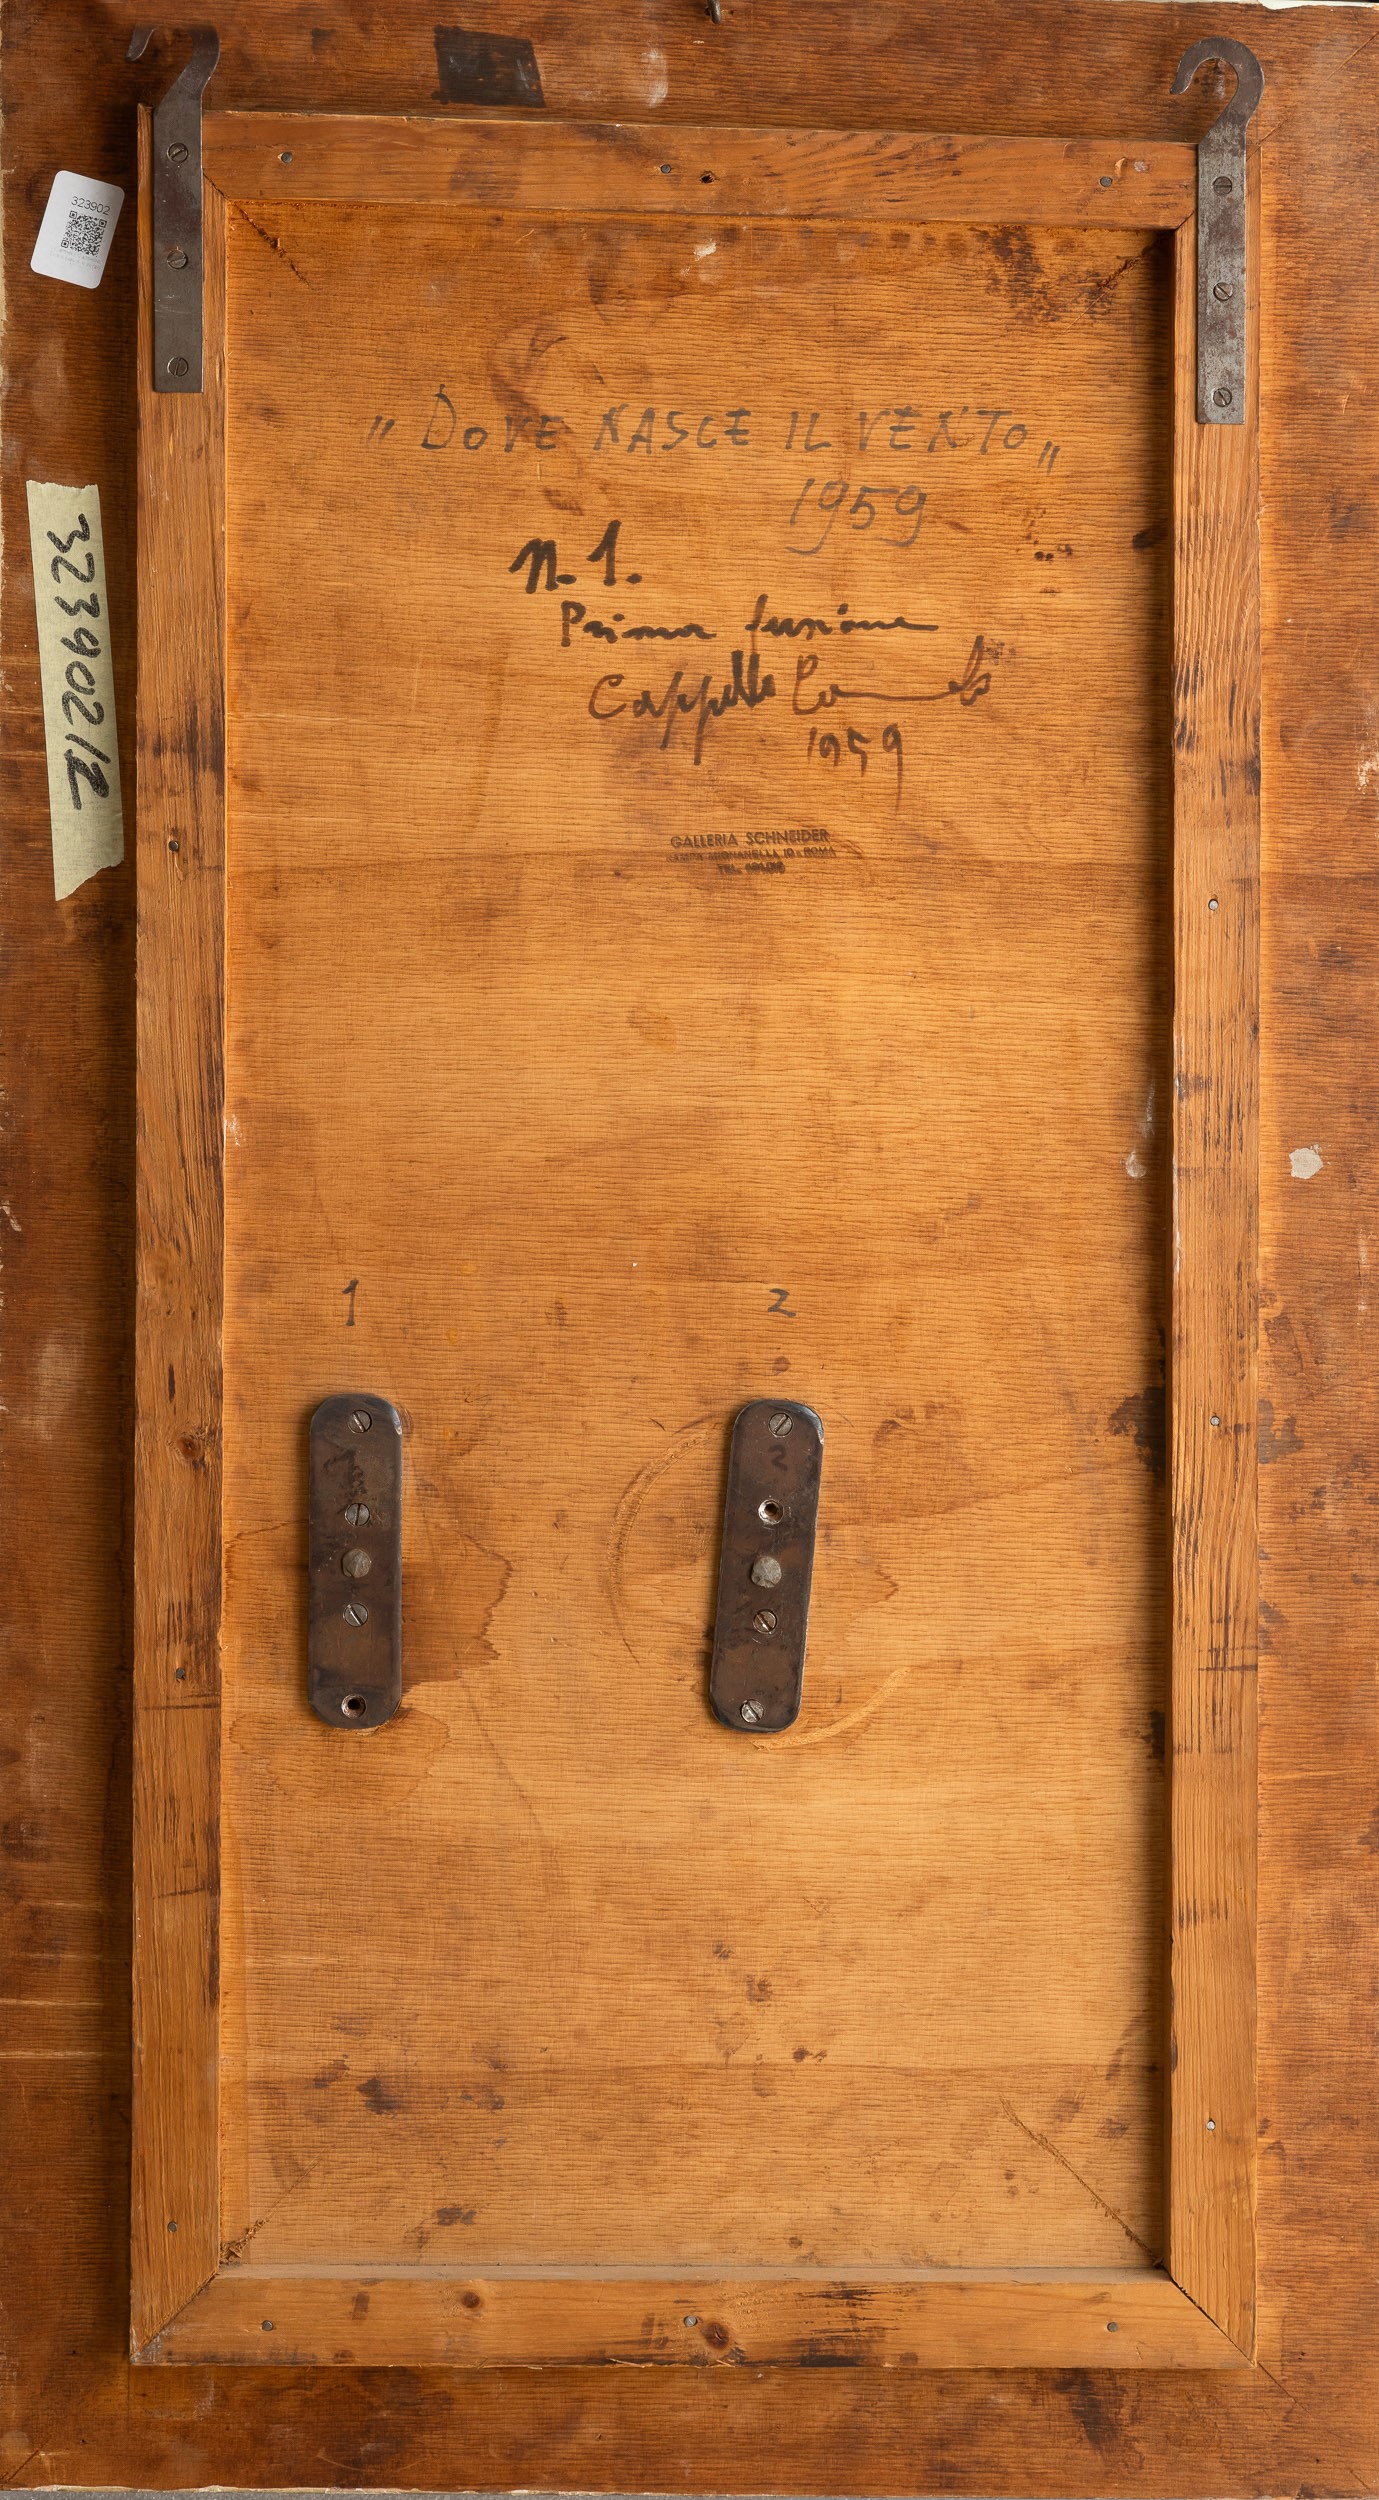 323902
323902/2
„ DOVE NASCE IL VENTO „
1959
n. 1.
Prima fusione
Cappello Carmelo
1959
GALLERIA SCHNEIDER
RAMPA MIGNANELLI, 10 - ROMA
TEL.
1
2
2